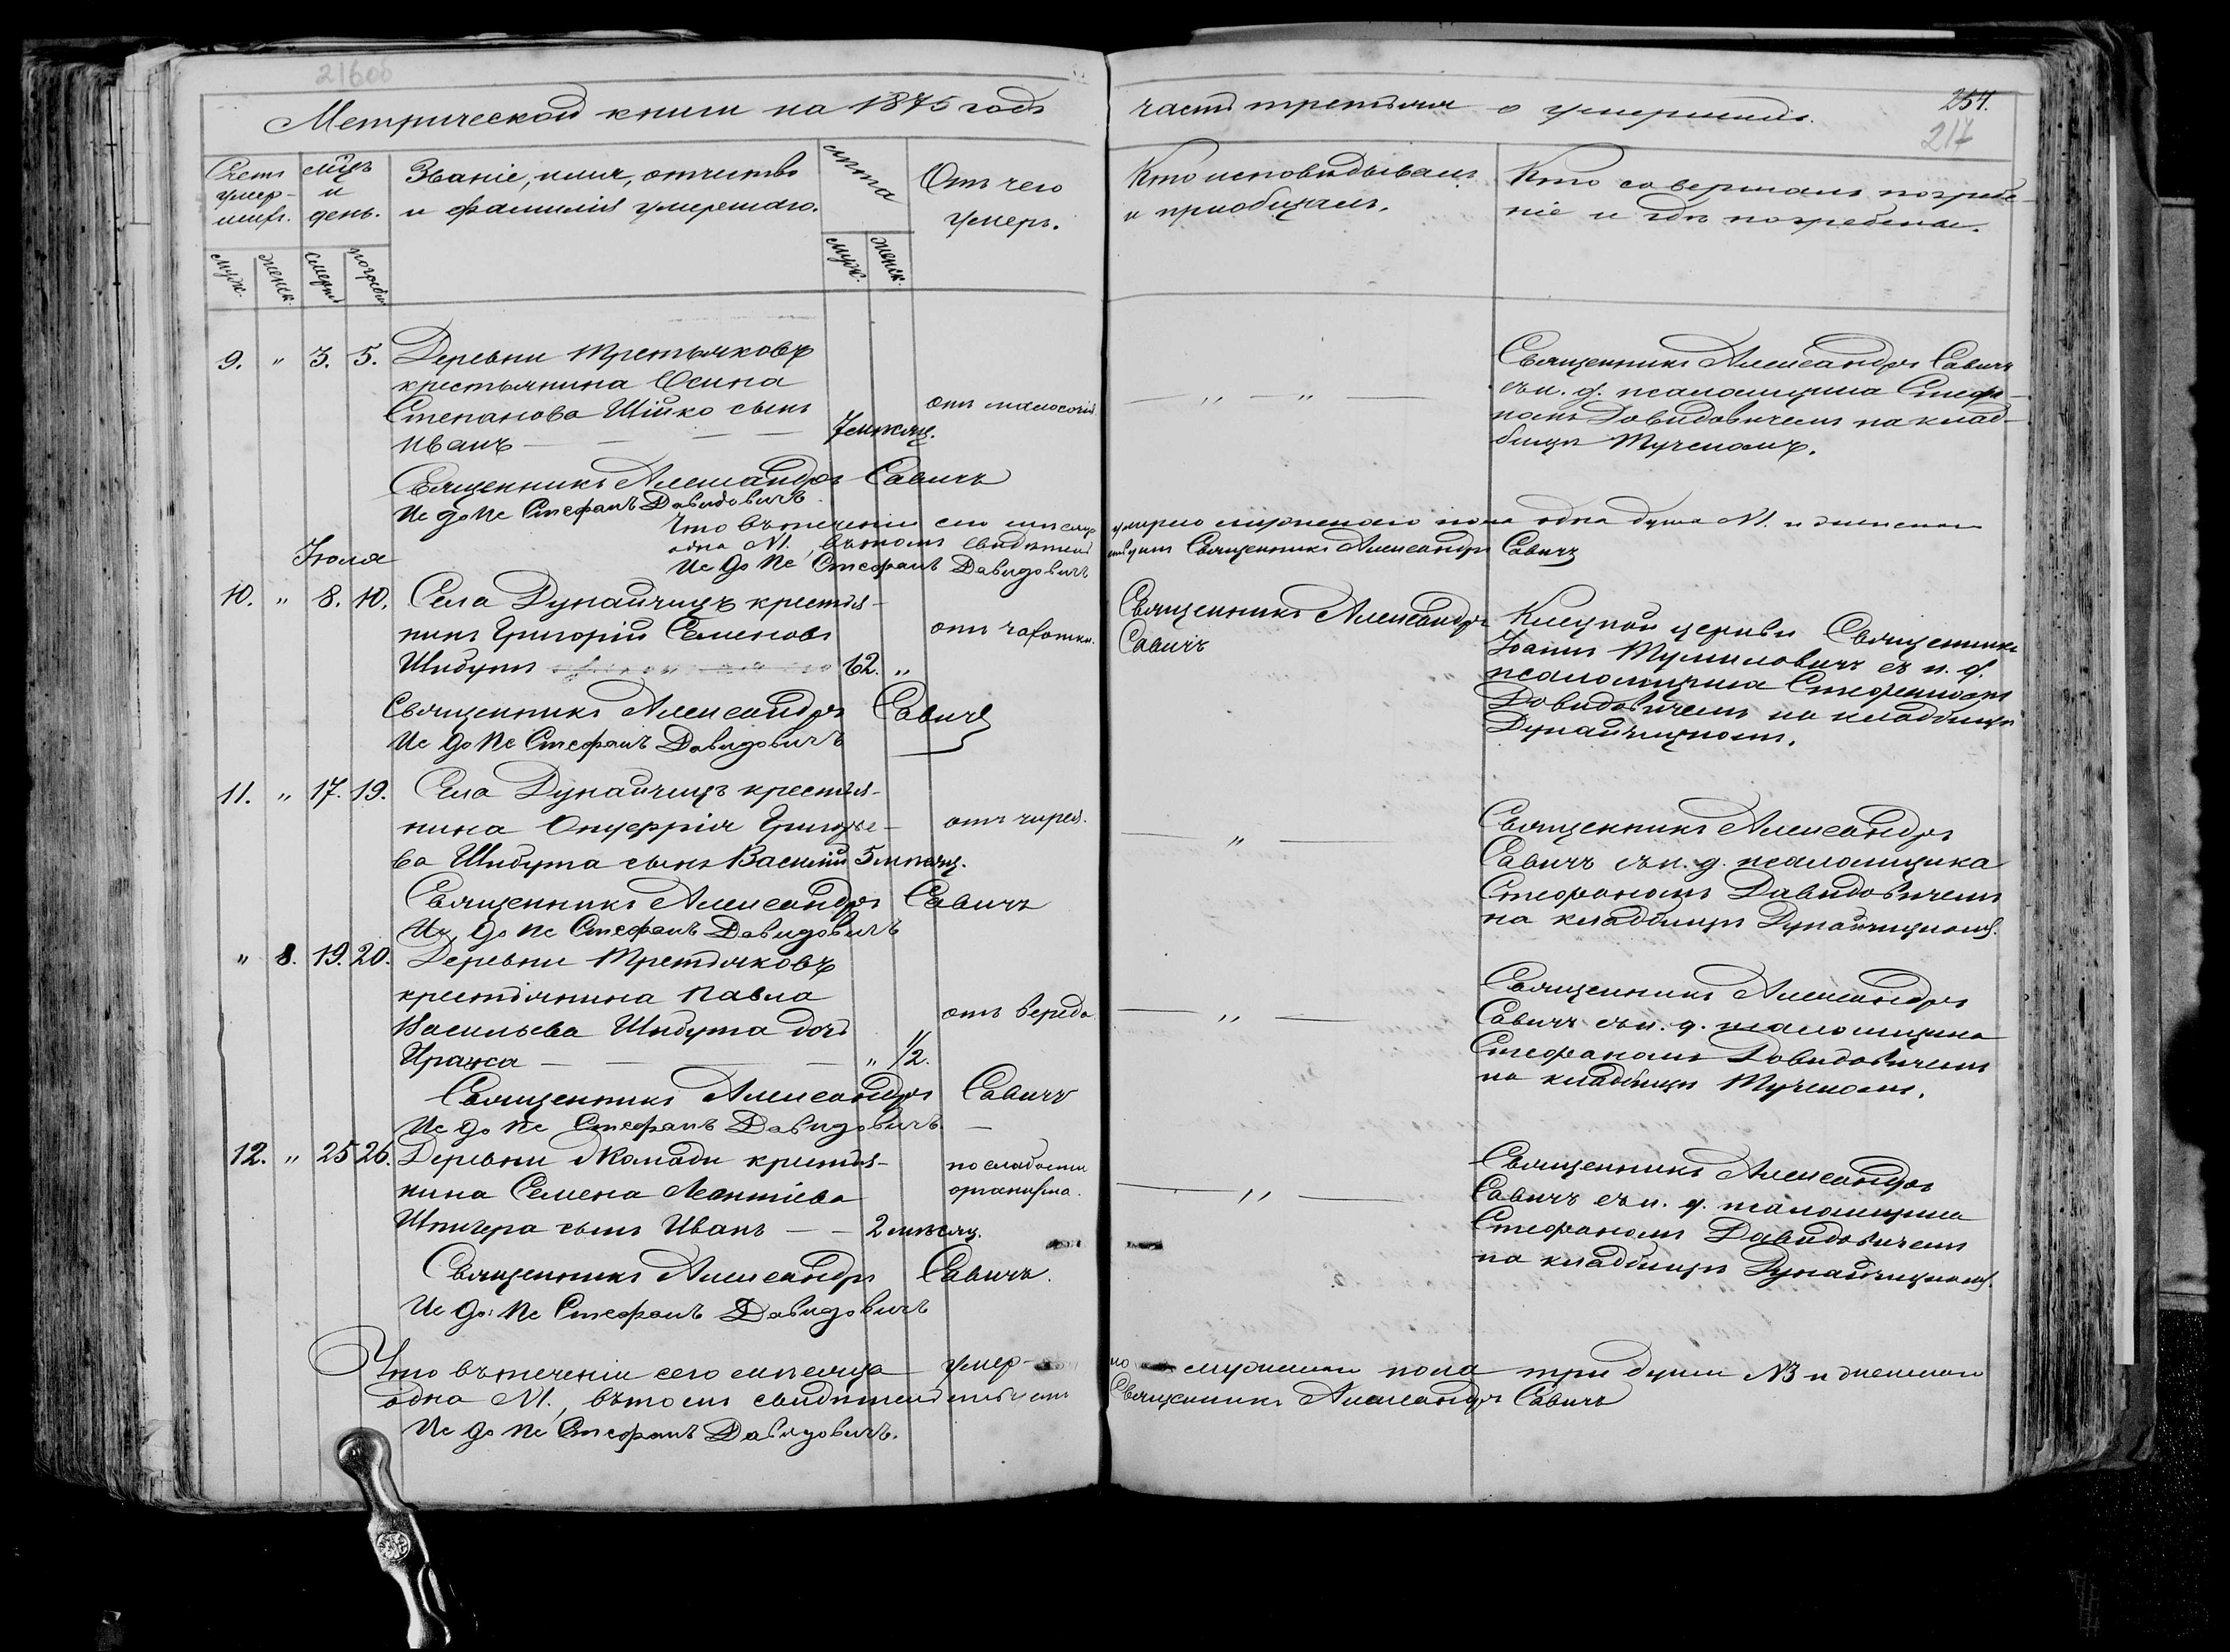 216об
Метрической книги на 1875 годъ
часть третья о умершихъ.
254.
217
Счетъ умер-шихъ.
мцъ и день.
Званіе, имя, отчество
и фамилія умершаго.
лѣта
Отъ чего
умеръ.
Кто исповѣдывалъ
и пріобщалъ.
Кто совершалъ погребе-
ніе и гдѣ погребены.
муж.
женск.
смерти
погребен
муж.
женск.
9. " 3. 5. Деревни Третьяковъ
крестьянина Осипа
Степанова Шійко сынъ
Иванъ — — — 7 мѣсяц.
отъ малосочія
— " — " —
Священникъ Александръ Савичъ
съ и. д. псаломщика Стефа-
номъ Давидовичемъ на клад-
бищѣ Тучемъ.
Священникъ Александръ Савичъ
Ис до Пс Стефанъ Давидовичъ
Что въ теченіи сего мѣсяца умерло мужескаго пола одна душа №1. и женскаго
одна №1., въ томъ свидѣтельствуетъ Священникъ Александръ Савичъ
Ис до Пс Стефанъ Давидовичъ
Іюля
10. " 8. 10. Села Дунайчицъ крестья-
нинъ Григорій Семеновъ
Шибутъ 62. "
отъ чахотки.
Священникъ Александръ
Савичъ
Клецкой церкви Священникъ
Іоаннъ Тумиловичъ съ и. д.
псаломщика Стефаномъ
Давидовичемъ на кладбищѣ
Дунайчицкомъ.
Священникъ Александръ Савичъ
Ис до Пс Стефанъ Давидовичъ
11. " 17. 19. Села Дунайчицъ крестья-
нина Онуфрія Григорье-
ва Шибута сынъ Василій 5 мѣсяц.
отъ чирея.
— " —
Священникъ Александръ
Савичъ съ и. д. псаломщика
Стефаномъ Давидовичемъ
на кладбищѣ Дунайчицкомъ.
Священникъ Александръ Савичъ
Ис до Пс Стефанъ Давидовичъ
" 8. 19. 20. Деревни Третьяковъ
крестьянина Павла
Васильева Шибута дочь
Иража — — — " 1/2.
отъ вереда
— " —
Священникъ Александръ
Савичъ съ и. д. псаломщика
Стефаномъ Давидовичемъ
на кладбищѣ Тучемъ.
Священникъ Александръ Савичъ
Ис до Пс Стефанъ Давидовичъ.
12. " 25 26. Деревни крестья-
нина Семена Леонтіева
Шпигера сынъ Иванъ — — 2 мѣсяц.
по слабости
организма.
— " —
Священникъ Александръ
Савичъ съ и. д. псаломщика
Стефаномъ Давидовичемъ
на кладбищѣ Дунайчицкомъ.
Священникъ Александръ Савичъ.
Ис до: Пс Стефанъ Давидовичъ
Что въ теченіи сего мѣсяца умер-ло мужескаго пола три души №3 и женскаго
одна №1., въ томъ свидѣтельствуетъ Священникъ Александръ Савичъ
Ис до Пс Стефанъ Давидовичъ.